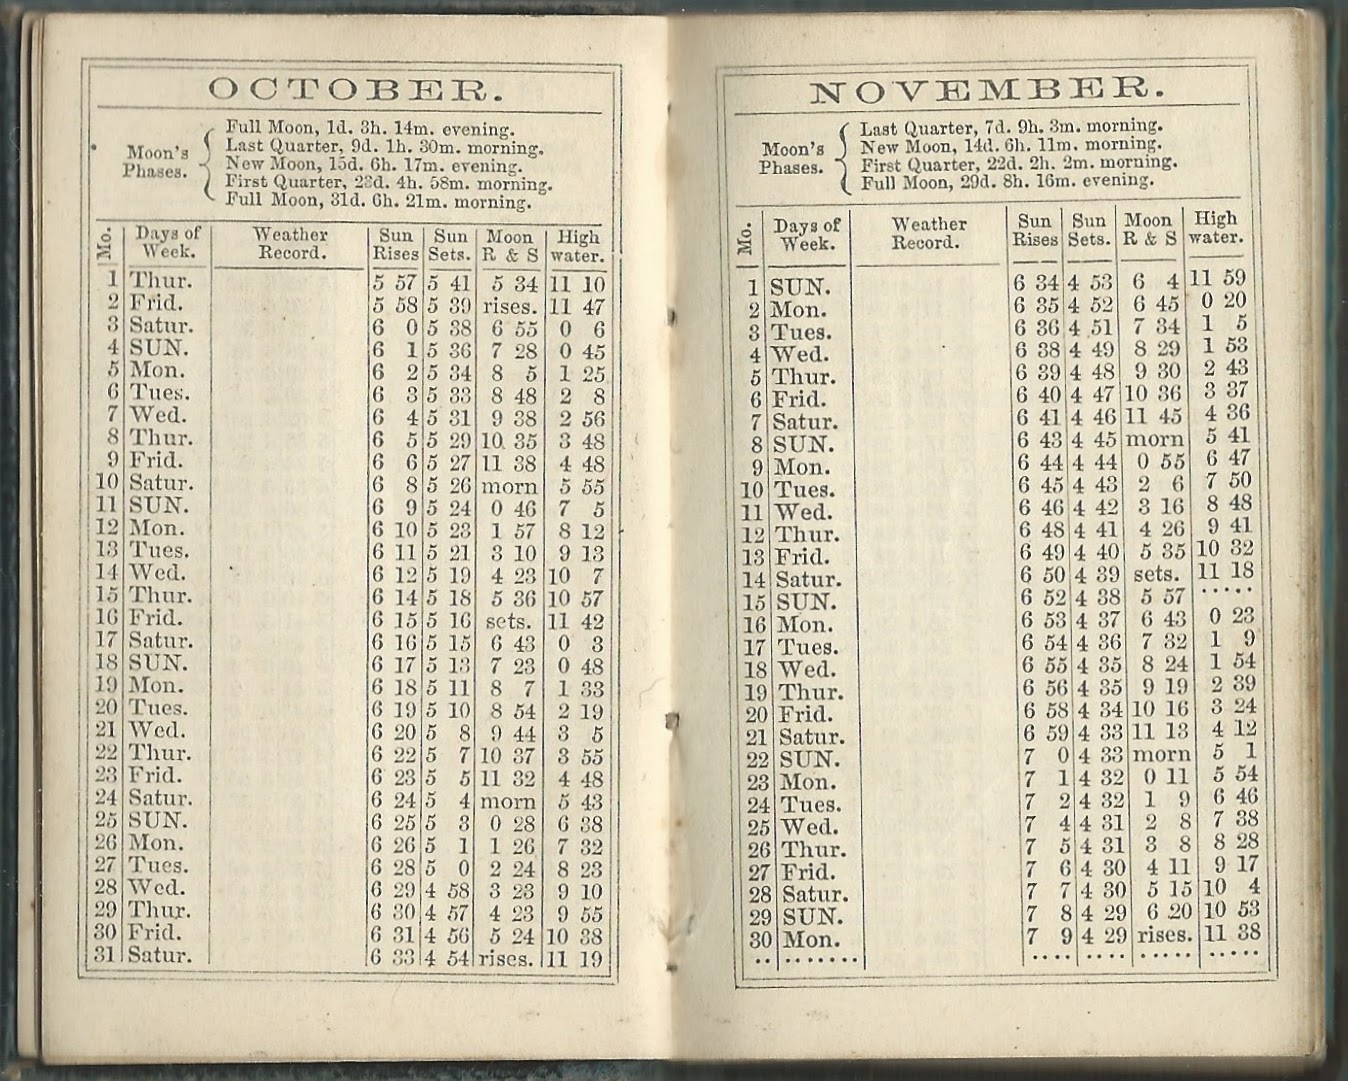 OCTOBER.
Moon's
Phases.
Full Moon, 1d. 3h. 14m. evening.
Last Quarter, 9d. 1h. 30m. morning.
New Moon, 15d. 6h. 17m. evening.
First Quarter, 23d. 4h. 58m. morning.
Full Moon, 31d. 6h. 21m. morning.
Mo. Days of Week. Weather Record. Sun Rises Sun Sets. Moon R & S High water.
1 Thur. 5 57 5 41 5 34 11 10
2 Frid. 5 58 5 39 rises. 11 47
3 Satur. 6 0 5 38 6 55 0 6
4 SUN. 6 1 5 36 7 28 0 45
5 Mon. 6 2 5 34 8 5 1 25
6 Tues. 6 3 5 33 8 48 2 8
7 Wed. 6 4 5 31 9 38 2 56
8 Thur. 6 5 5 29 10 35 3 48
9 Frid. 6 6 5 27 11 38 4 48
10 Satur. 6 8 5 26 morn 5 55
11 SUN. 6 9 5 24 0 46 7 5
12 Mon. 6 10 5 23 1 57 8 12
13 Tues. 6 11 5 21 3 10 9 13
14 Wed. 6 12 5 19 4 23 10 7
15 Thur. 6 14 5 18 5 36 10 57
16 Frid. 6 15 5 16 sets. 11 42
17 Satur. 6 16 5 15 6 43 0 3
18 SUN. 6 17 5 13 7 23 0 48
19 Mon. 6 18 5 11 8 7 1 33
20 Tues. 6 19 5 10 8 54 2 19
21 Wed. 6 20 5 8 9 44 3 5
22 Thur. 6 22 5 7 10 37 3 55
23 Frid. 6 23 5 5 11 32 4 48
24 Satur. 6 24 5 4 morn 5 43
25 SUN. 6 25 5 3 0 28 6 38
26 Mon. 6 26 5 1 1 26 7 32
27 Tues. 6 28 5 0 2 24 8 23
28 Wed. 6 29 4 58 3 23 9 10
29 Thur. 6 30 4 57 4 23 9 55
30 Frid. 6 31 4 56 5 24 10 38
31 Satur. 6 33 4 54 rises. 11 19
NOVEMBER.
Moon's
Phases.
Last Quarter, 7d. 9h. 3m. morning.
New Moon, 14d. 6h. 11m. morning.
First Quarter, 22d. 2h. 2m. morning.
Full Moon, 29d. 8h. 16m. evening.
Mo. Days of Week. Weather Record. Sun Rises Sun Sets. Moon R & S High water.
1 SUN. 6 34 4 53 6 4 11 59
2 Mon. 6 35 4 52 6 45 0 20
3 Tues. 6 36 4 51 7 34 1 5
4 Wed. 6 38 4 49 8 29 1 53
5 Thur. 6 39 4 48 9 30 2 43
6 Frid. 6 40 4 47 10 36 3 37
7 Satur. 6 41 4 46 11 45 4 36
8 SUN. 6 43 4 45 morn 5 41
9 Mon. 6 44 4 44 0 55 6 47
10 Tues. 6 45 4 43 2 6 7 50
11 Wed. 6 46 4 42 3 16 8 48
12 Thur. 6 48 4 41 4 26 9 41
13 Frid. 6 49 4 40 5 35 10 32
14 Satur. 6 50 4 39 sets. 11 18
15 SUN. 6 52 4 38 5 57 .....
16 Mon. 6 53 4 37 6 43 0 23
17 Tues. 6 54 4 36 7 32 1 9
18 Wed. 6 55 4 35 8 24 1 54
19 Thur. 6 56 4 35 9 19 2 39
20 Frid. 6 58 4 34 10 16 3 24
21 Satur. 6 59 4 33 11 13 4 12
22 SUN. 7 0 4 33 morn 5 1
23 Mon. 7 1 4 32 0 11 5 54
24 Tues. 7 2 4 32 1 9 6 46
25 Wed. 7 4 4 31 2 8 7 38
26 Thur. 7 5 4 31 3 8 8 28
27 Frid. 7 6 4 30 4 11 9 17
28 Satur. 7 7 4 30 5 15 10 4
29 SUN. 7 8 4 29 6 20 10 53
30 Mon. 7 9 4 29 rises. 11 38
.. ....... .... .... ..... .....